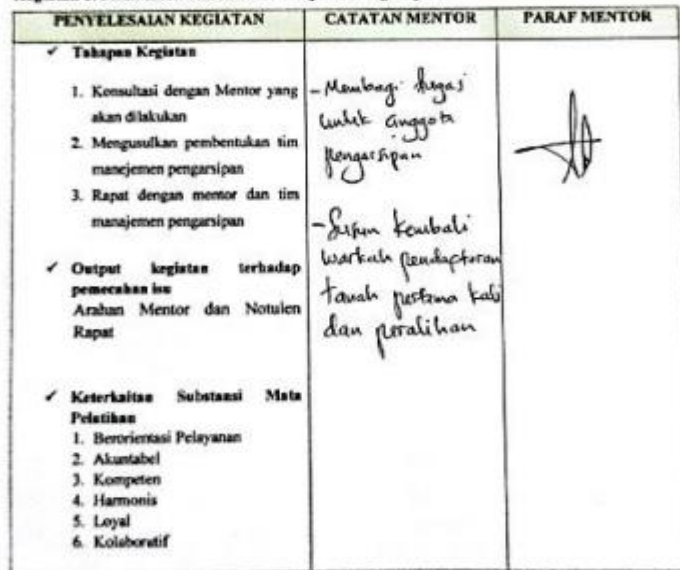 PENYELESAIAN KEGIATAN
CATATAN MENTOR
PARAF MENTOR
✓ Tahapan Kegiatan
1. Konsultasi dengan Mentor yang
akan dilakukan
2. Mengusulkan pembentukan tim
manejemen pengarsipan
3. Rapat dengan mentor dan tim
manajemen pengarsipan
✓ Output kegiatan terhadap
pemecahan isu
Arahan Mentor dan Notulen
Rapat
✓ Keterkaitan Substansi Mata
Pelatihan
1. Berorientasi Pelayanan
2. Akuntabel
3. Kompeten
4. Harmonis
5. Loyal
6. Kolaboratif
- Membagi tugas
untuk anggota
pengarsipan
- Susun kembali
warkah pendaftaran
tanah pertama kali
dan peralihan